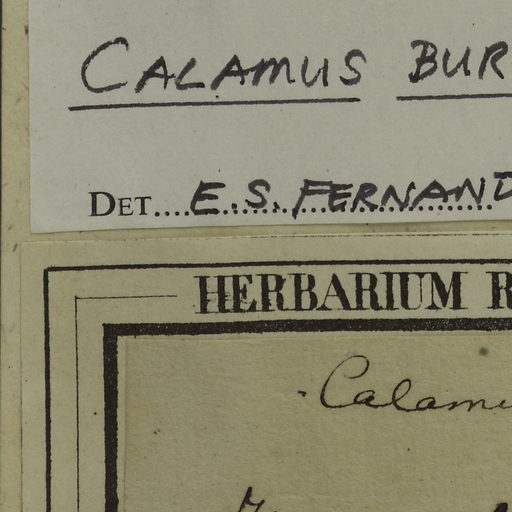 CALAMUS BUR
DET....E.S. FERNAND
HERBARIUM R
Calamu